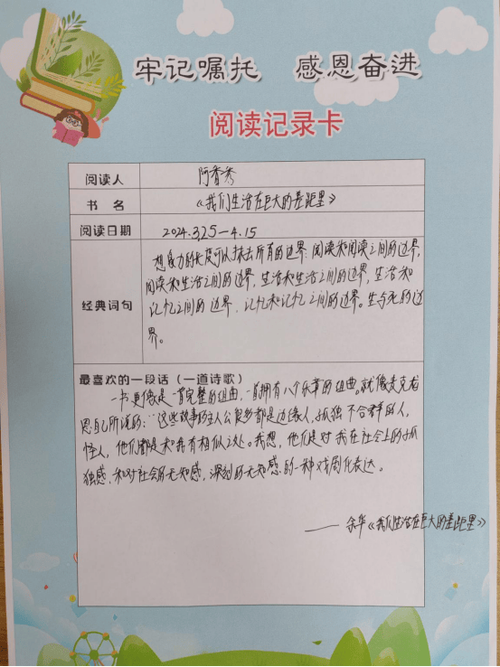 牢记嘱托 感恩奋进
阅读记录卡
阅读人 阿香秀
书 名 《我们生活在巨大的差距里》
阅读日期 2024.3.25-4.15
经典词句
想象力的长度可以抹去所有的边界：阅读和阅读之间的边界，
阅读和生活之间的边界，生活和生活之间的边界，生活和
记忆之间的边界，记忆和记忆之间的边界。生与死的边
界。
最喜欢的一段话（一道诗歌）
一书更像是一首完整的组曲，一首拥有八个乐章的组曲。就像麦克尤
恩自己所说的：“这些故事的主人公很多都是边缘人，孤独不合群的人，
怪人，他们都是和我有相似之处。我想，他们是对我在社会上的孤
独感，和对社会的无知感，深刻的无知感的一种戏剧化表达。
——余华《我们生活在巨大的差距里》